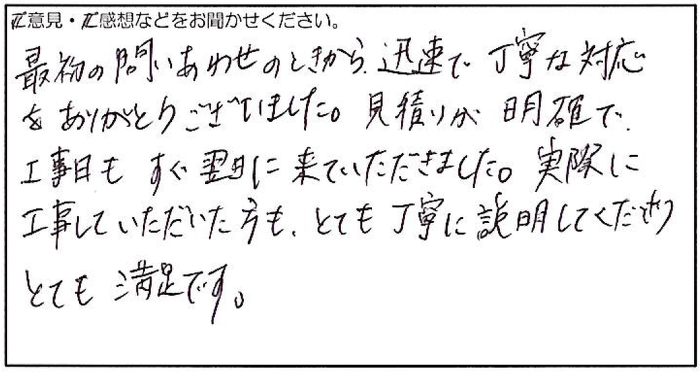 ご意見・ご感想などをお聞かせください。
最初の問いあわせのときから、迅速で丁寧な対応
をありがとうございました。見積りが明確で、
工事日もすぐ翌日に来ていただきました。実際に
工事していただいた方も、とても丁寧に説明してくださり
とても満足です。